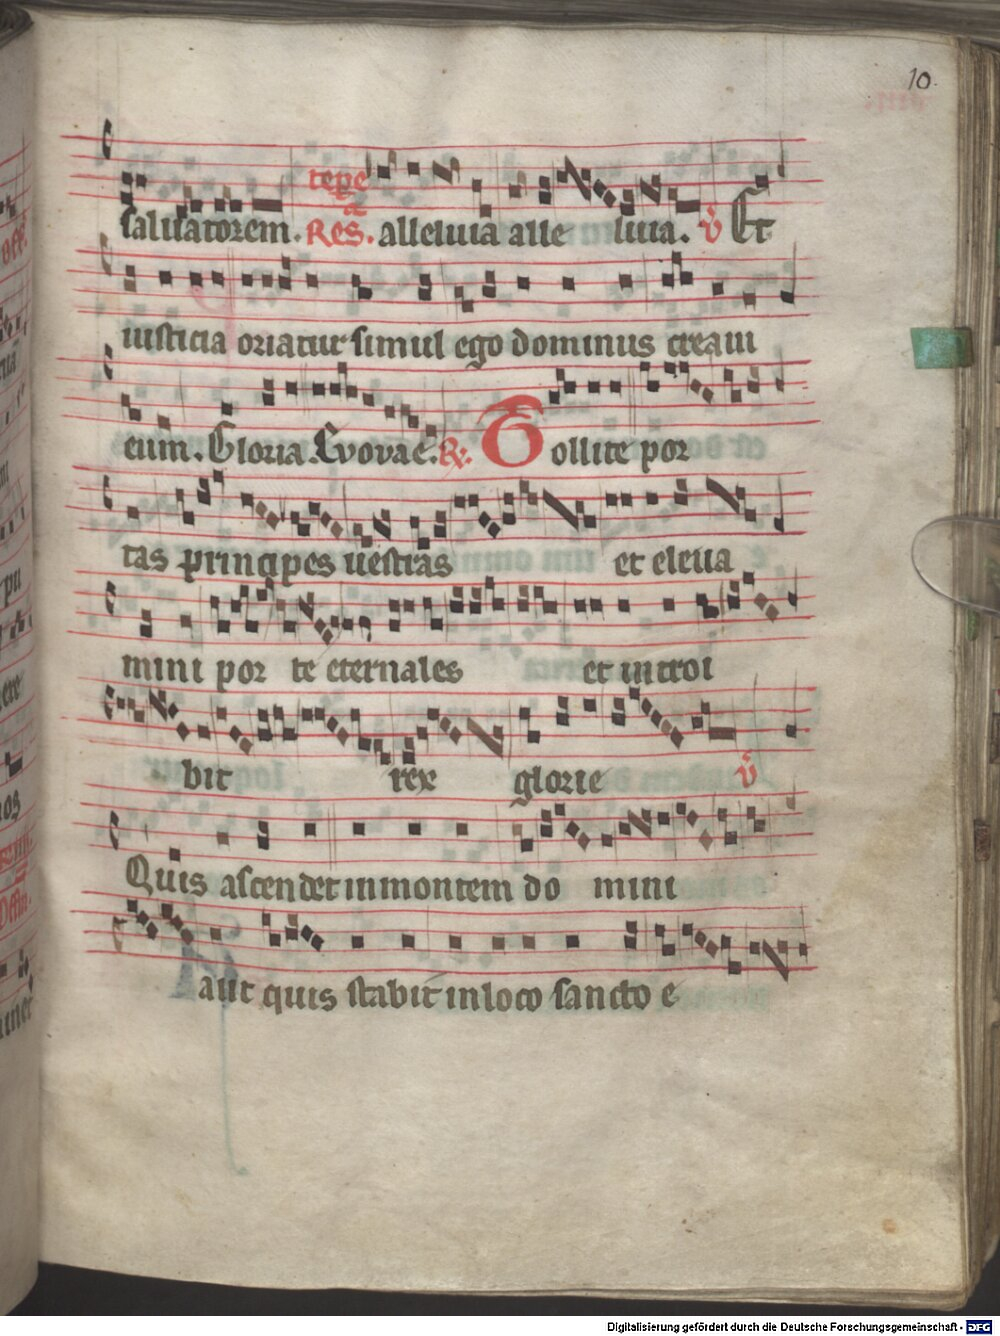 10
tẹpe
a
saluatorem. Res. alleluia alle luia. v̊ Et
iusticia oriatur simul ego dominus creaui
eum. Gloria. Evovae. R. Tollite por
tas principes uestras et eleua
mini por te eternales et introi
bit rex glorie v̊
Quis ascendet in montem do mini
aut quis stabit in loco sancto e
Digitalisierung gefördert durch die Deutsche Forschungsgemeinschaft - DFG